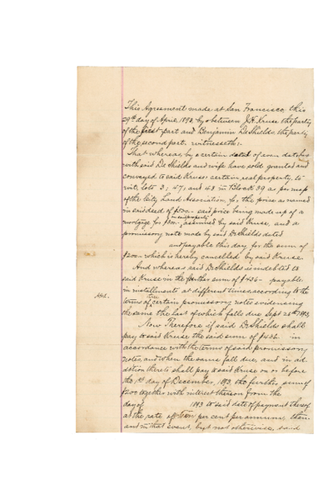 This Agreement made at San Francisco, this
29th day of April 1892 by & between J. H. Kruse the party
of the first part and Benjamin DeShields the party
of the second part, witnesseth:
That whereas by a certain deed of even date
said DeShields and wife have sold, granted and
conveyed to said Kruse certain real property, to
wit, lots 3, 47, and 48 in Block 39 as per map
of the City Land Association for the price as named
in said deed of said price being made up of a
mortgage for assumed by said Kruse, and a
promissory note made by said DeShields dated
and payable this day for the sum of
$200 which is hereby cancelled by said Kruse.
And whereas said DeShields is indebted to
said Kruse in the further sum of payable
in installments at different times according to the
terms of certain promissory notes evidencing
the same the last of which falls due Sept 28th 1893
Now Therefore if said DeShields shall
pay to said Kruse the said sum of in
accordance with the terms of said promissory
notes, and when the same fall due, and in ad
dition thereto shall pay to said Kruse on or before
the 1st day of December, 1893, the further sum of
$200 together with interest thereon from the
day of 1893 to said date of payment thereof
at the rate of ten per cent per annum, then
and in that event, but not otherwise, said